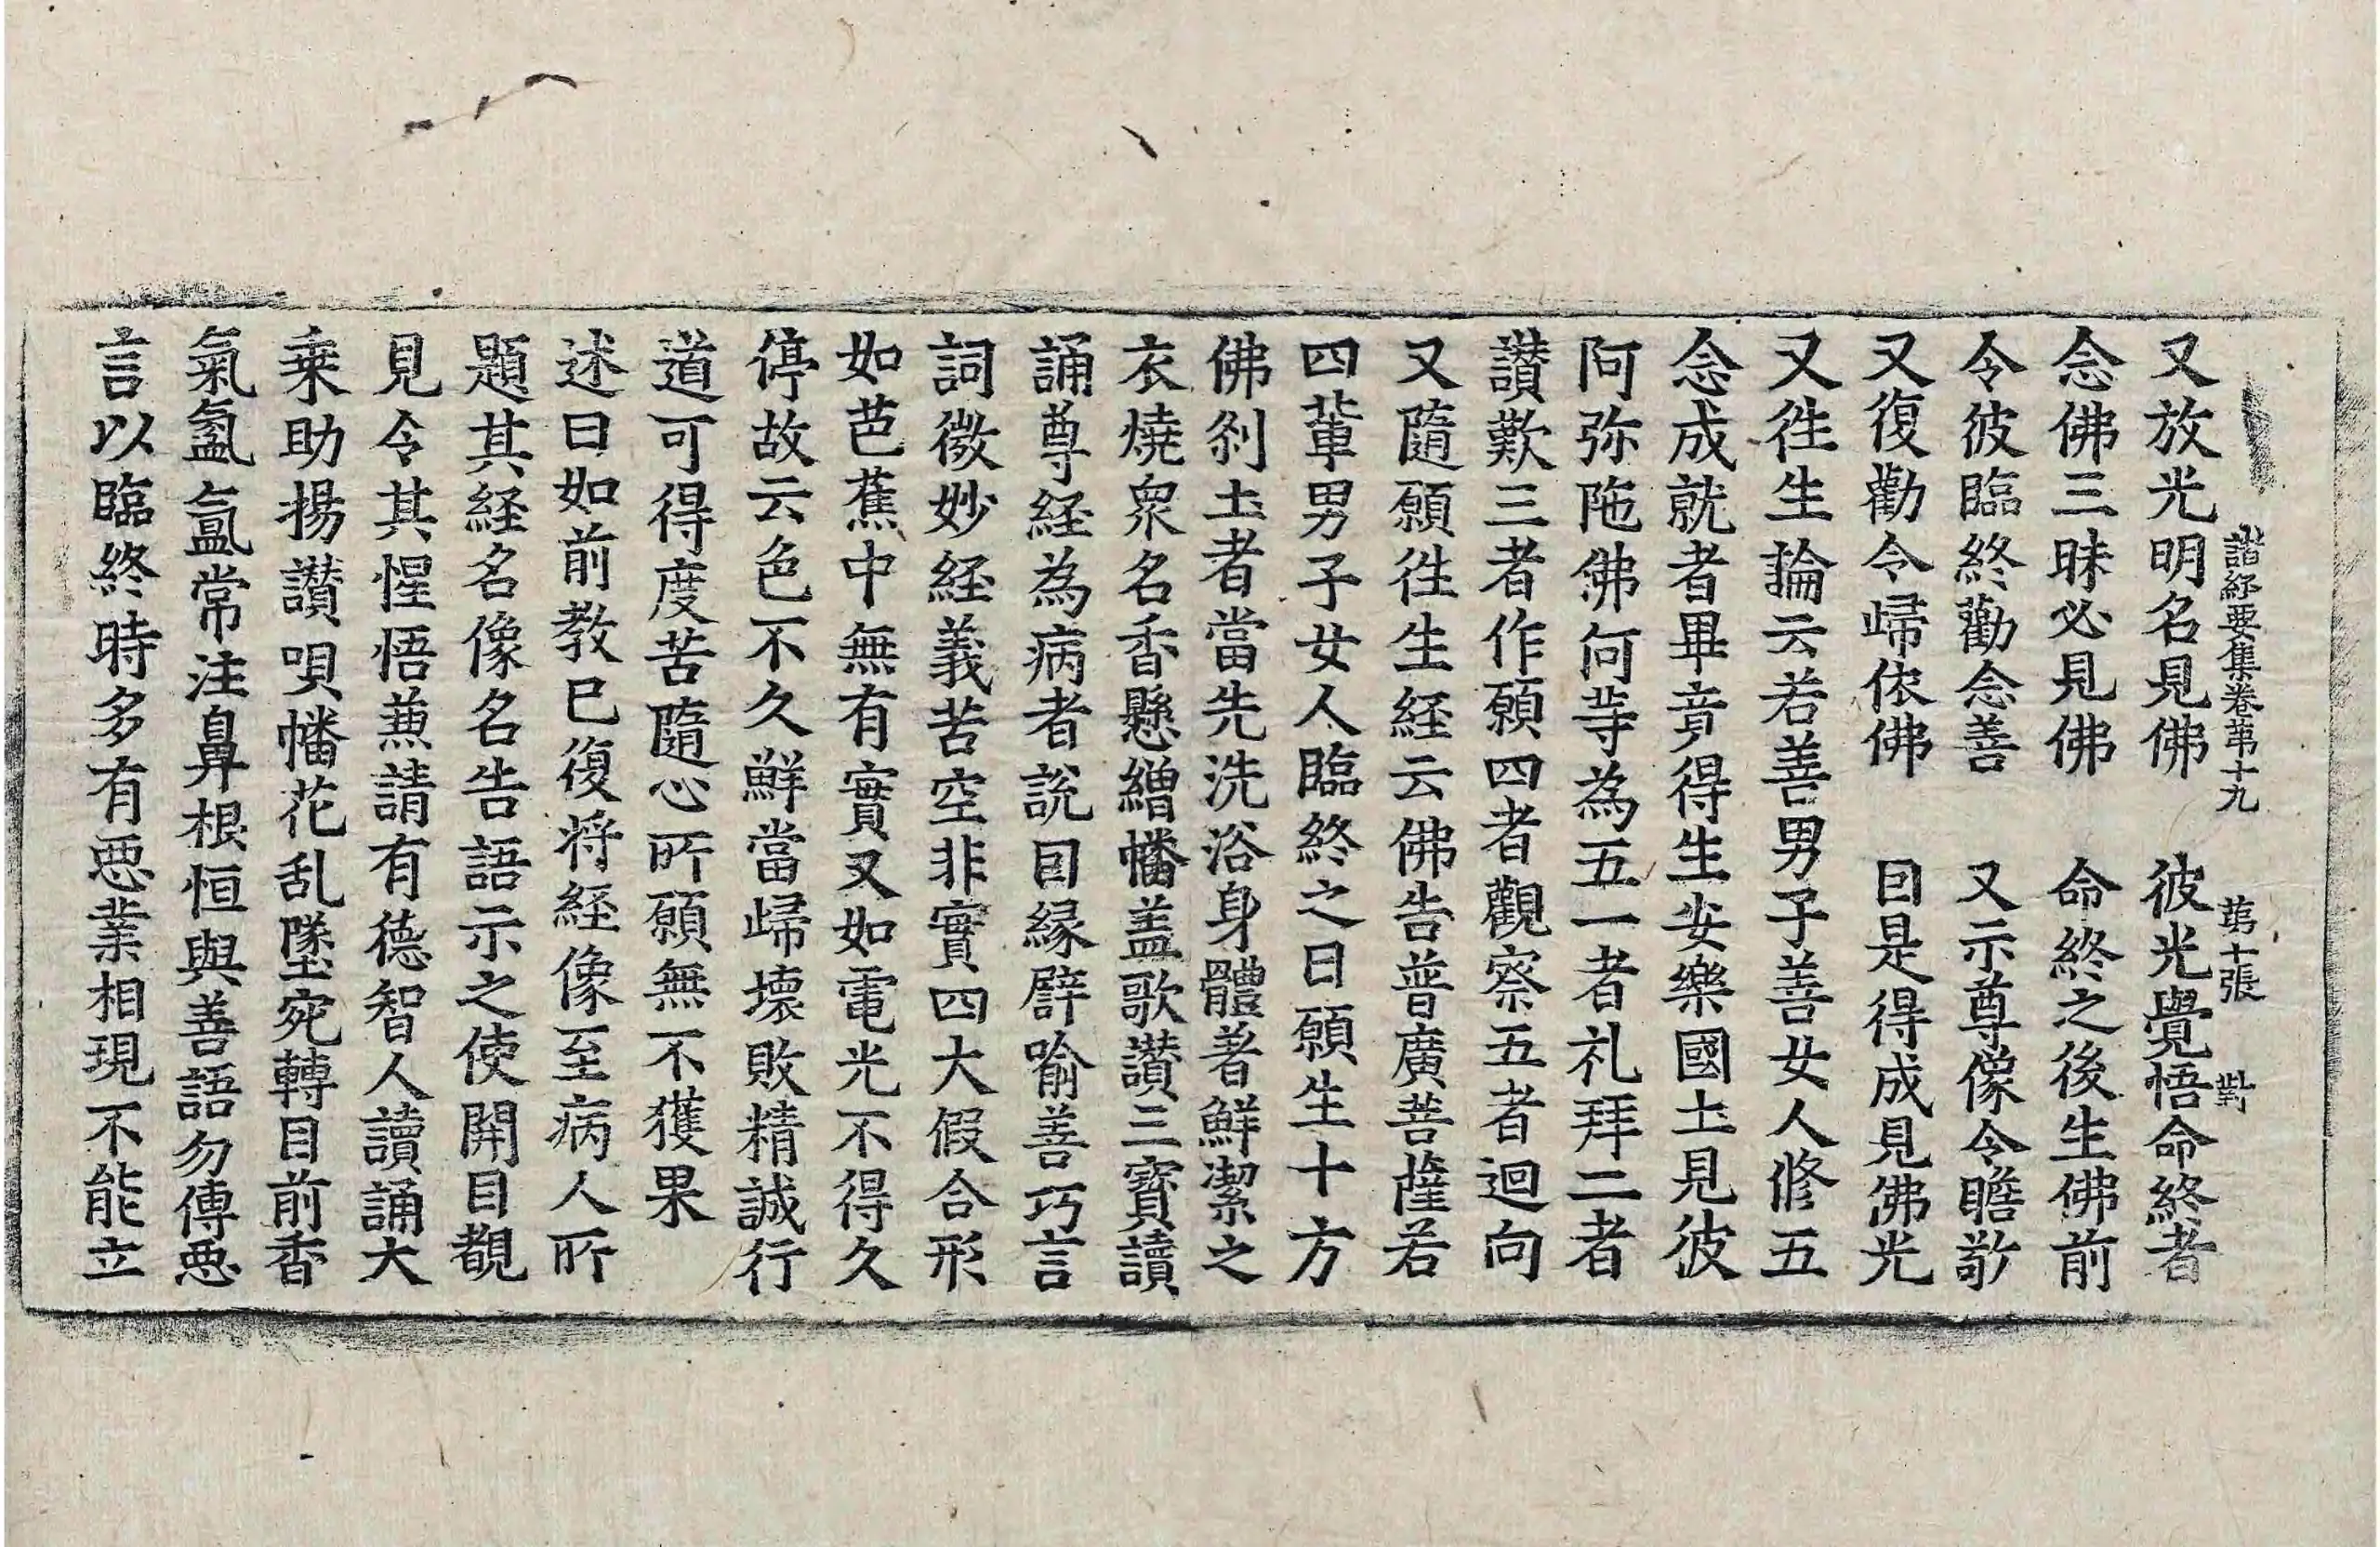 諸経要集卷苐十九　苐十張　對
又放光明名見佛　彼光覺悟命終者
念佛三昧必見佛　命終之後生佛前
令彼臨終勸念善　又示尊像令瞻敬
又復勸令歸依佛　因是得成見佛光
又徃生論云若善男子善女人修五
念成就者畢竟得生安樂國土見彼
阿弥陁佛何等為五一者礼拜二者
讃歎三者作願四者觀察五者迴向
又隨願徃生経云佛告普廣菩薩若
四軰男子女人臨終之日願生十方
佛剎土者當先洗浴身體著鮮潔之
衣燒衆名香懸繒幡盖歌讃三寶讀
誦尊経為病者説因縁譬喻善巧言
詞微妙経義苦空非實四大假合形
如芭蕉中無有實又如電光不得久
停故云色不久鮮當歸壊敗精誠行
道可得度苦隨心所願無不獲果
述曰如前教已復將経像至病人所
題其経名像名告語示之使開目覩
見令其惺悟兼請有德智人讀誦大
乗助揚讃唄幡花乱墜宛轉目前香
氣氳氳常注鼻根恒與善語勿傳惡
言以臨終時多有惡業相現不能立